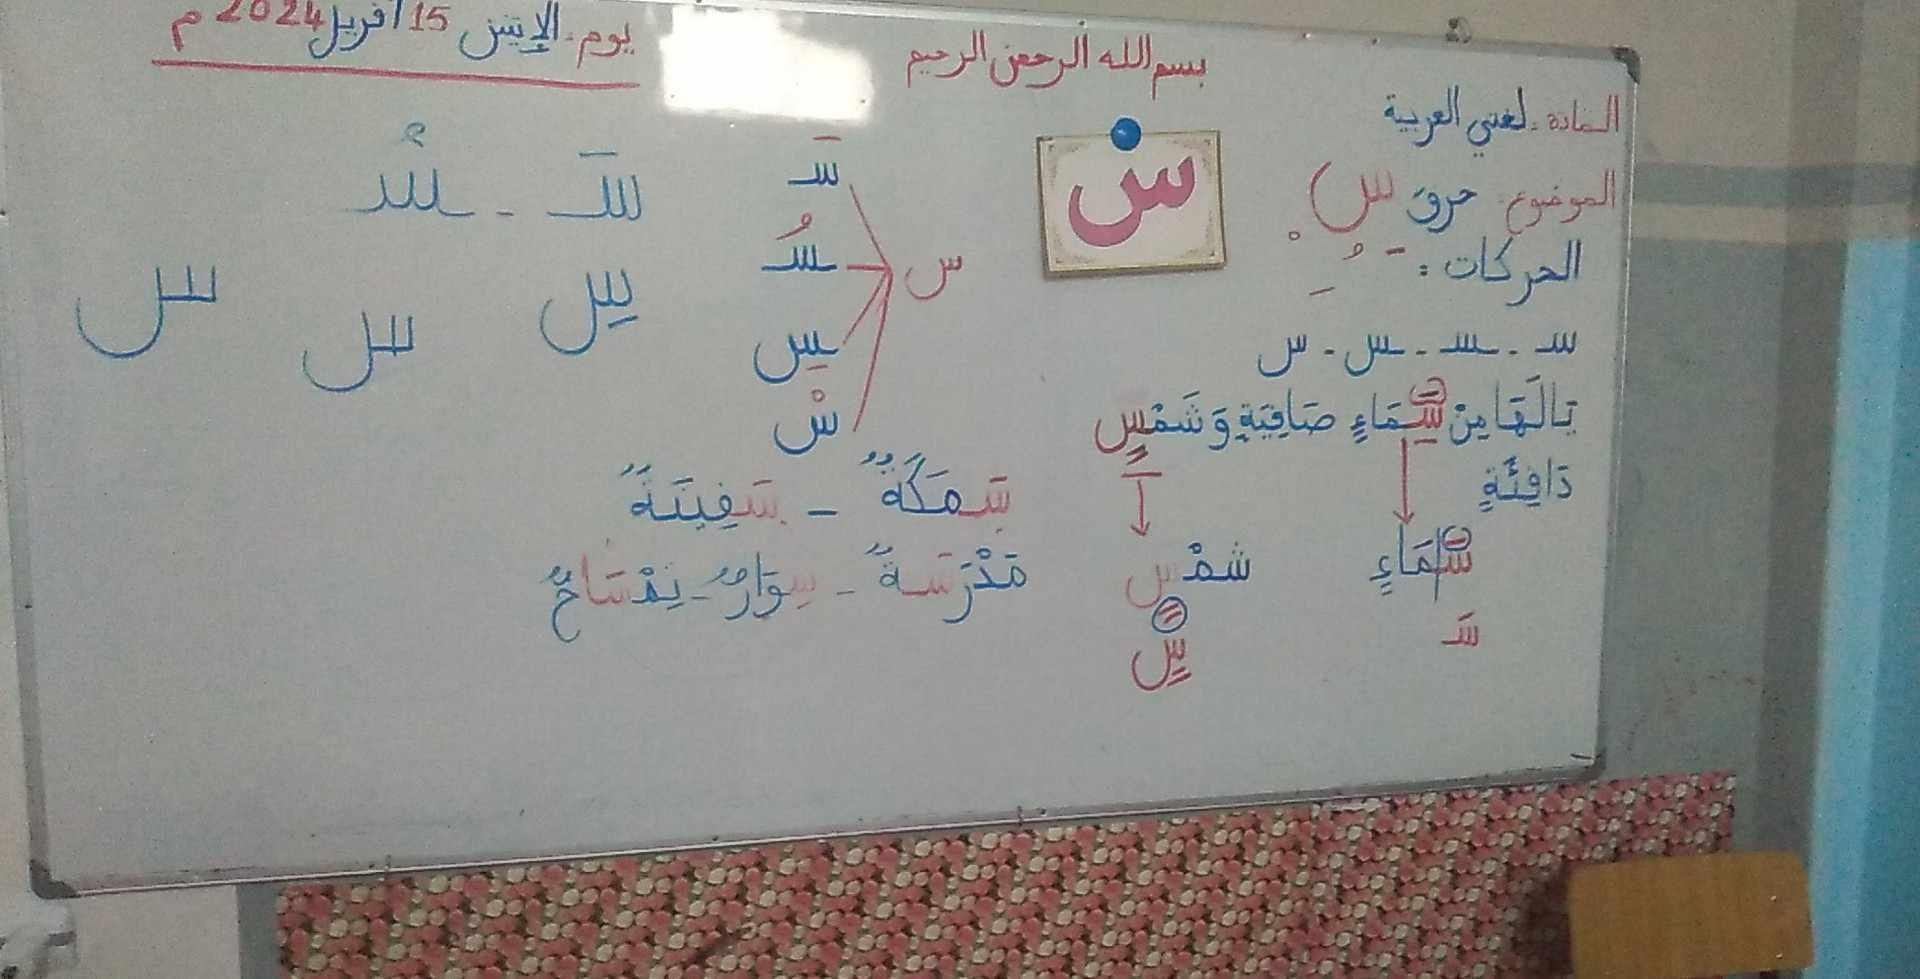 يوم. الإثنين 15 أفريل 2024 م
بسم الله الرحمن الرحيم
المادة. لغتي العربية
الموضوع. حرف س
س
الحركات : َ ُ ِ ْ
سـ - ـسـ - ـس - س
يَا لَهَا مِنْ سَمَاءٍ صَافِيَةٍ وَ شَمْسٍ
دَافِئَةٍ
سَمَاءٍ
سَـ
شمْسٍ
سٍ
س
سَـ
ـسُـ
ـسِ
سْ
سَـ - ـسُـ
سِ
ـس
ـس
سَمَكَةٌ - سَفِينَةٌ
مَدْرَسَةٌ - سِوَارٌ - تِمْسَاحٌ